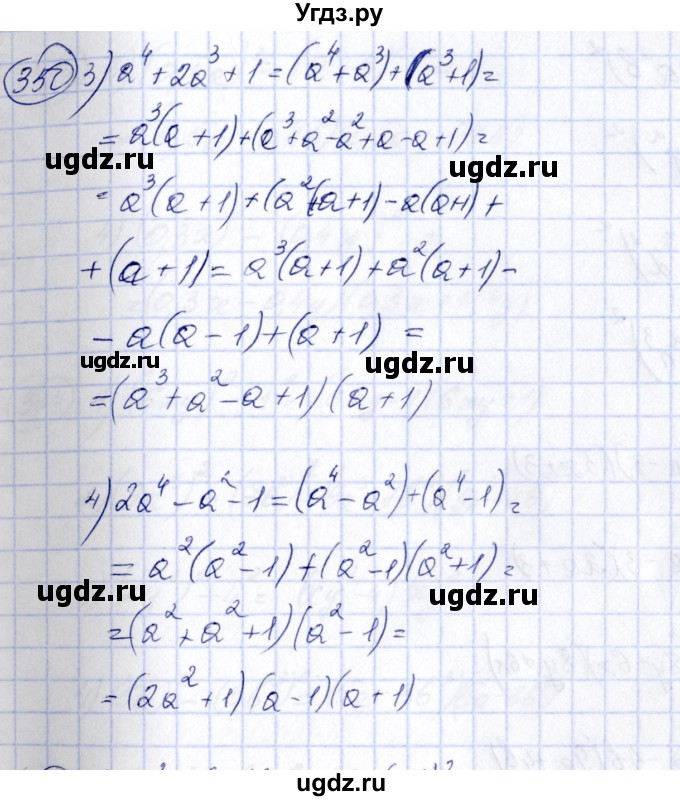 Угдз.ру
350 3) a⁴ + 2a³ + 1 = (a⁴ + a³) + (a³ + 1) =
= a³(a + 1) + (a³ + a² - a² + a - a + 1) =
ugdz.ru ugdz.ru
= a³(a + 1) + (a²(a + 1) - a(a+1) +
+ (a + 1) = a³(a + 1) + a²(a + 1) -
- a(a - 1) + (a + 1) =
ugdz.ru ugdz.ru
= (a³ + a² - a + 1)(a + 1)
4) 2a⁴ - a² - 1 = (a⁴ - a²) + (a⁴ - 1) =
= a²(a² - 1) + (a² - 1)(a² + 1) =
ugdz.ru ugdz.ru
= (a² + a² + 1)(a² - 1) =
= (2a² + 1)(a - 1)(a + 1)
ugdz.ru
ugdz.ru